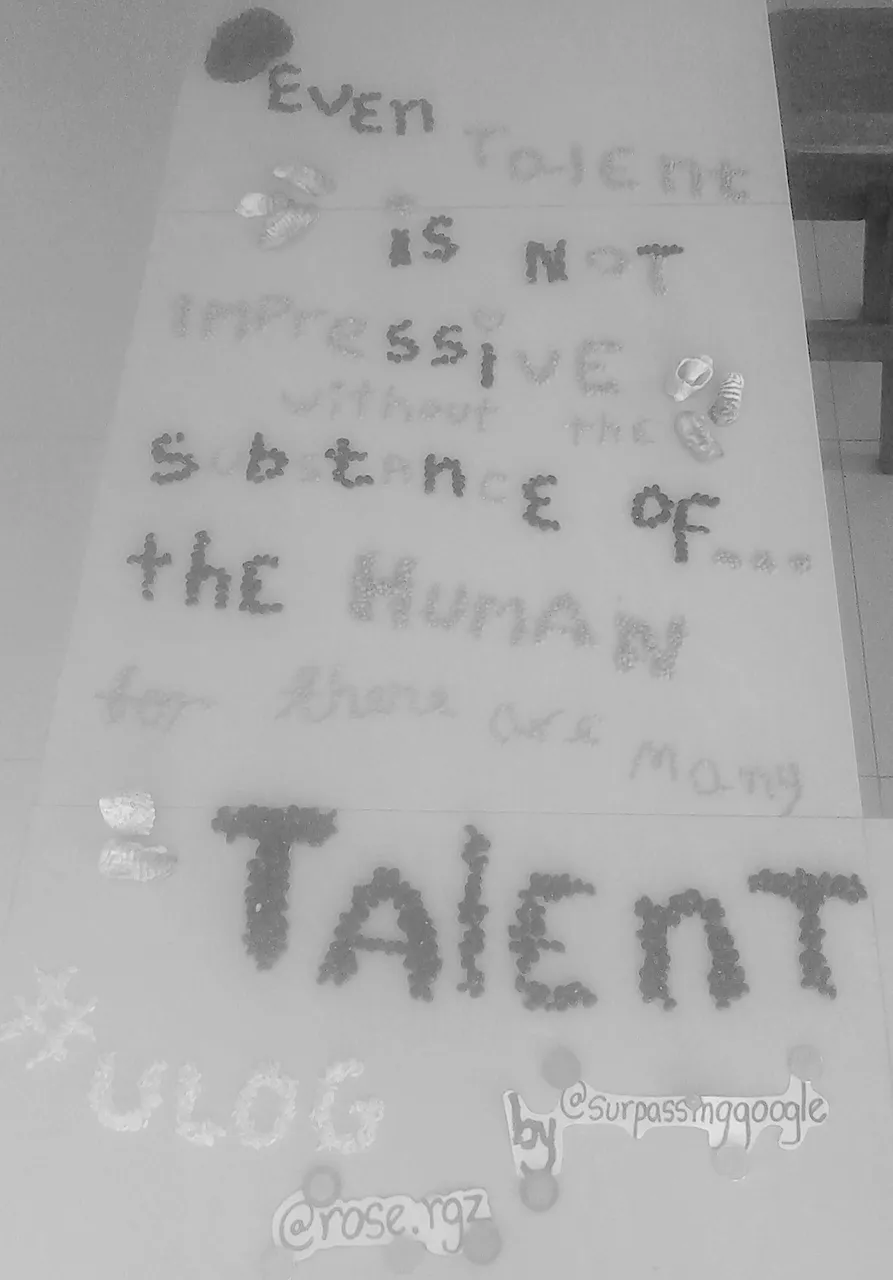 EVEn
TalEnt
is NOT
IMPressivE
without thE
SubstAncE OF...
thE HUMAN
for there are many
TAlEnT
*ULOG
by @surpassinggoogle
@rose.rgz